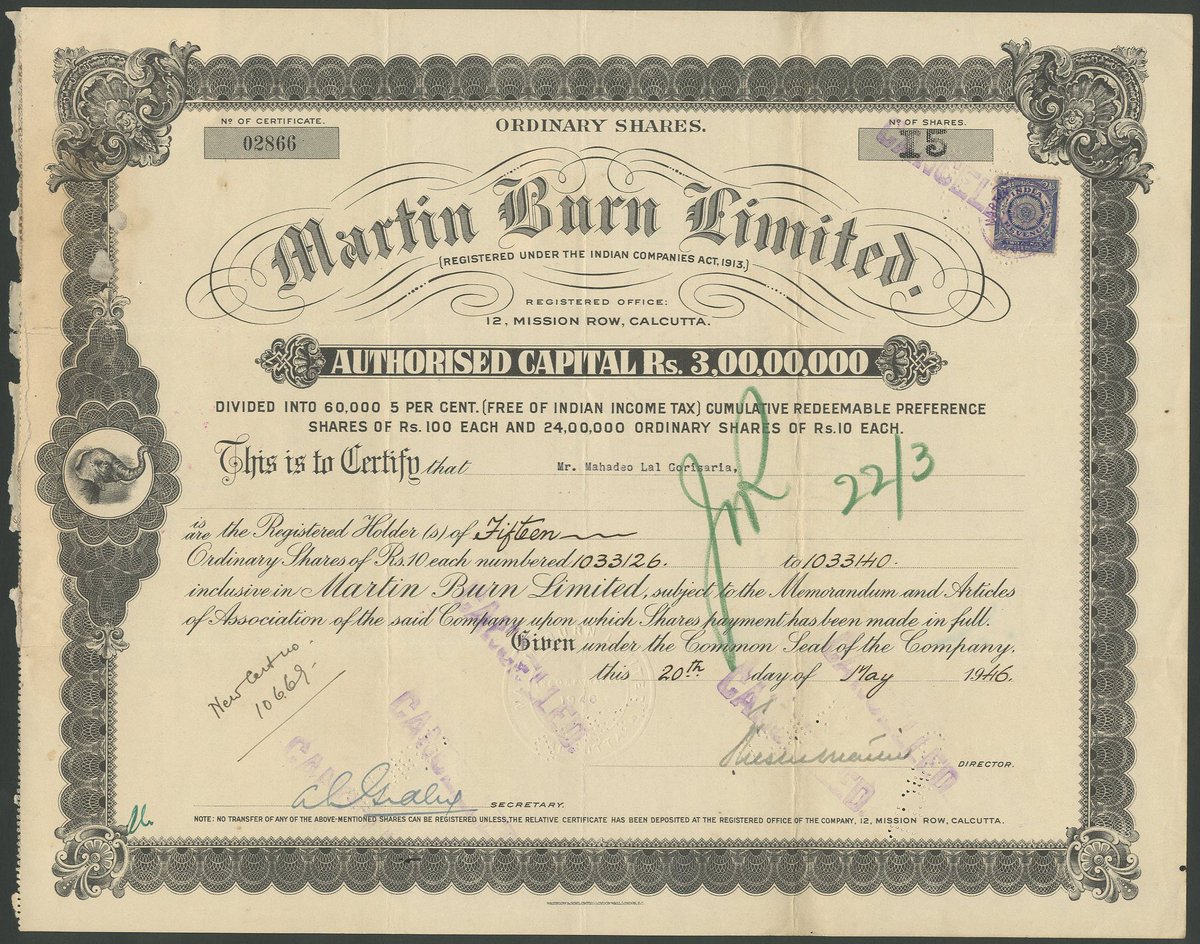 Nº OF CERTIFICATE.
02866
ORDINARY SHARES.
Nº OF SHARES.
15
CANCELLED
INDIA
REVENUE
Martin Burn Limited.
(REGISTERED UNDER THE INDIAN COMPANIES ACT, 1913.)
REGISTERED OFFICE:
12, MISSION ROW, CALCUTTA.
AUTHORISED CAPITAL Rs. 3,00,00,000
DIVIDED INTO 60,000 5 PER CENT. (FREE OF INDIAN INCOME TAX) CUMULATIVE REDEEMABLE PREFERENCE
SHARES OF Rs. 100 EACH AND 24,00,000 ORDINARY SHARES OF Rs. 10 EACH.
This is to Certify that Mr. Mahadeo Lal Gorisaria,
22/3
is
are the Registered Holder (s) of Fifteen
Ordinary Shares of Rs. 10 each numbered 1033126. to 1033140.
inclusive in Martin Burn Limited, subject to the Memorandum and Articles
of Association of the said Company upon which Shares payment has been made in full.
Given under the Common Seal of the Company,
this 20th. day of May 1946.
New Cert no
10669.
CANCELLED
CANCELLED
CANCELLED
CANCELLED
DIRECTOR.
SECRETARY.
NOTE: NO TRANSFER OF ANY OF THE ABOVE-MENTIONED SHARES CAN BE REGISTERED UNLESS, THE RELATIVE CERTIFICATE HAS BEEN DEPOSITED AT THE REGISTERED OFFICE OF THE COMPANY, 12, MISSION ROW, CALCUTTA.